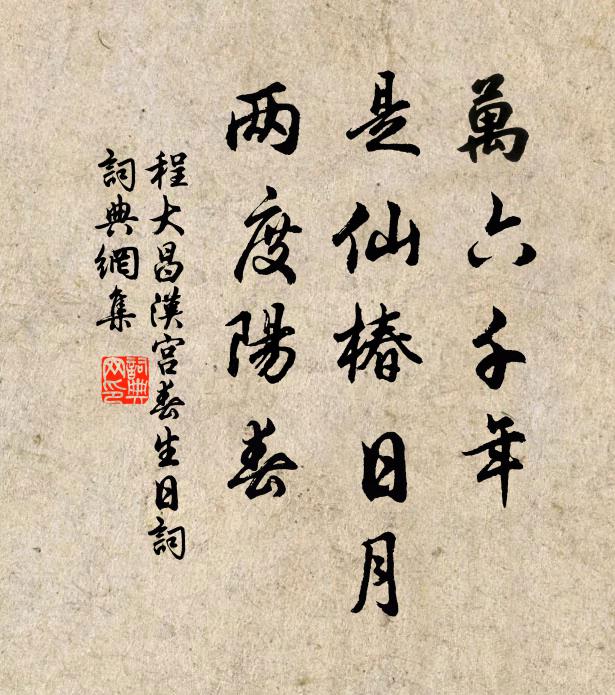 萬六千年
是仙椿日月
两度陽春
程大昌漢宮春生日詞
詞典網集
詞典网印